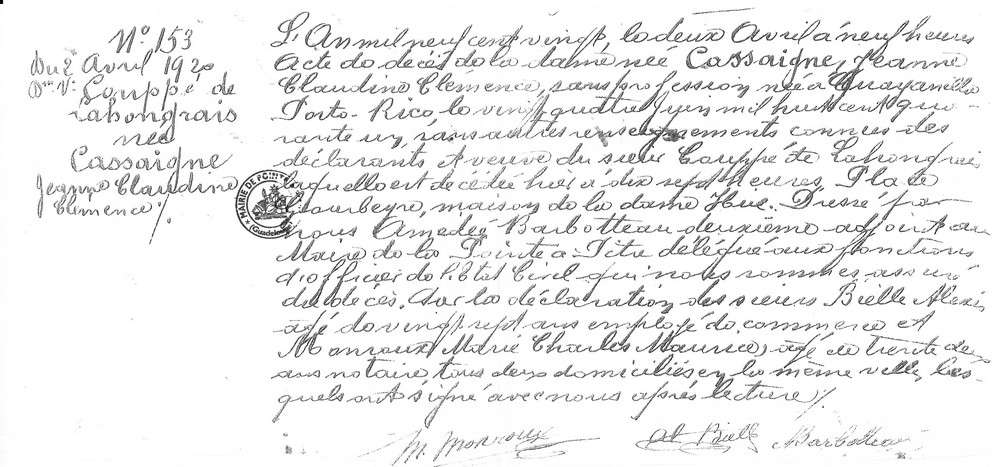 Nº 153
Du 2 Avril 1920
Dme Ve
Couppé de
Lahongrais
née
Cassaigne
Jeanne Claudine
Clémence /.
L'An mil neuf cent vingt, le deux Avril à neuf heures
Acte de décès de la dame née Cassaigne, Jeanne
Claudine Clémence, sans profession née à Guayanilla
Porto-Rico, le vingt quatre Juin mil huit cent qua-
rante un, sans autres renseignements connus des
déclarants et veuve du sieur Couppé de Lahongrais
laquelle est décédée hier à dix sept heures, Place
Gourbeyre, maison de la dame Hue. Dressé par
nous Amédée Barbotteau deuxième adjoint au
Maire de la Pointe-à-Pitre délégué aux fonctions
d'officier de l'Etat Civil qui nous sommes assuré
du décès. Sur la déclaration des sieurs Bielle Alexis
âgé de vingt sept ans employé de commerce et
Monroux Marie Charles Maurice, âgé de trente deux
ans notaire, tous deux domiciliés en la même ville, les-
quels ont signé avec nous après lecture /.
MAIRIE DE POINTE
(Guadeloupe)
M. Monroux Al Bielle Barbotteau